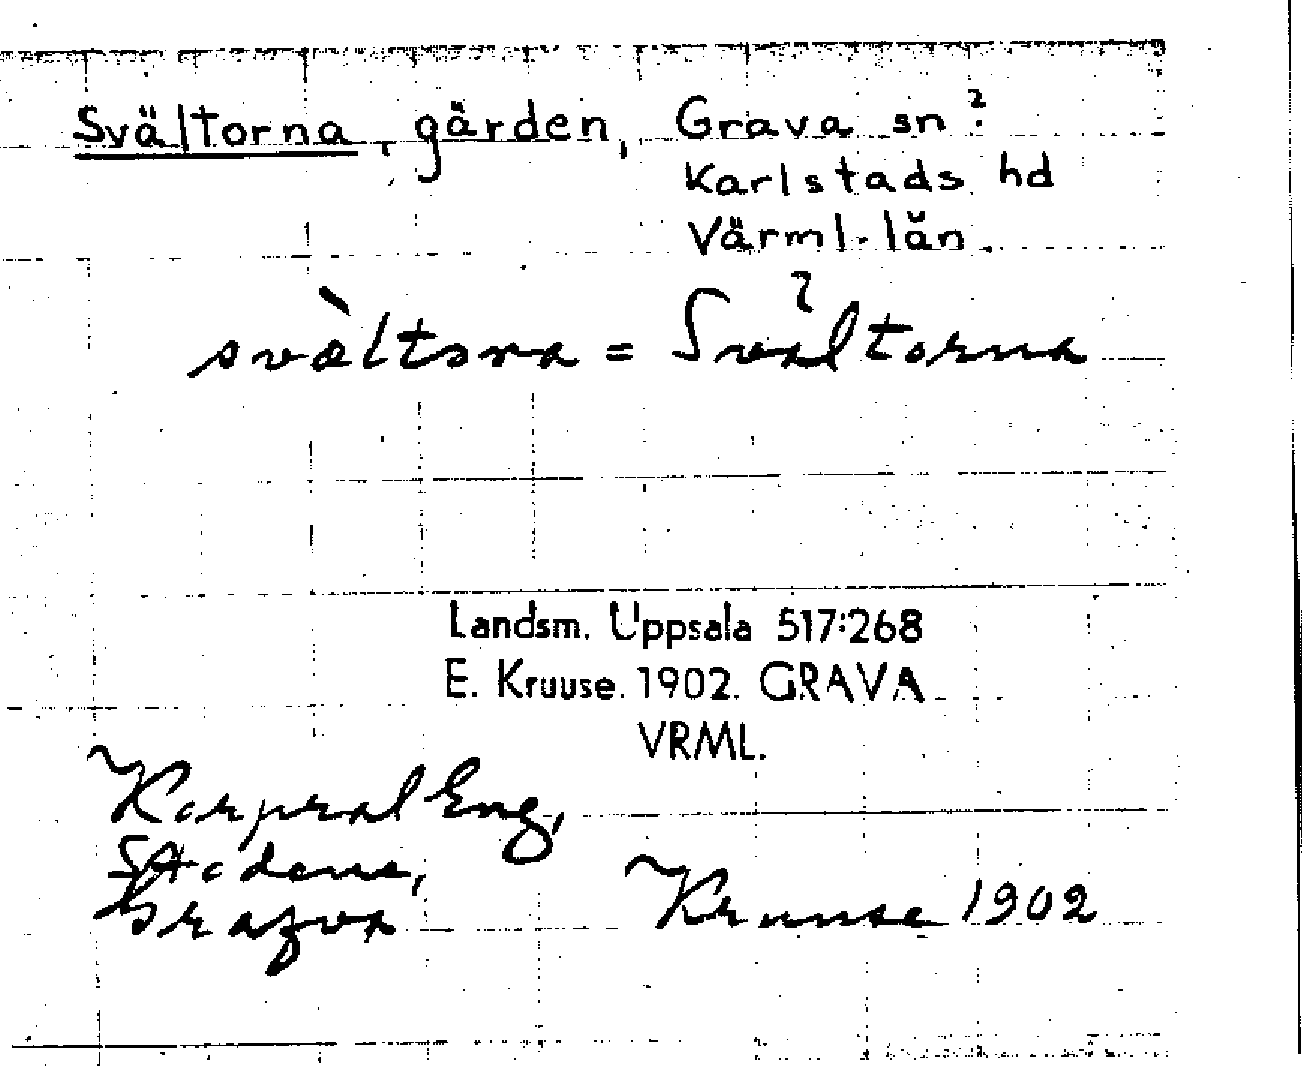 Svältorna, gärden, Grava sn?
Karlstads hd
Värml. län.
svältorna = Svältorna ?
Landsm. Uppsala 517:268
E. Kruuse. 1902. GRAVA
VRML.
Korpral Eng,
Grafva
Kruuse 1902